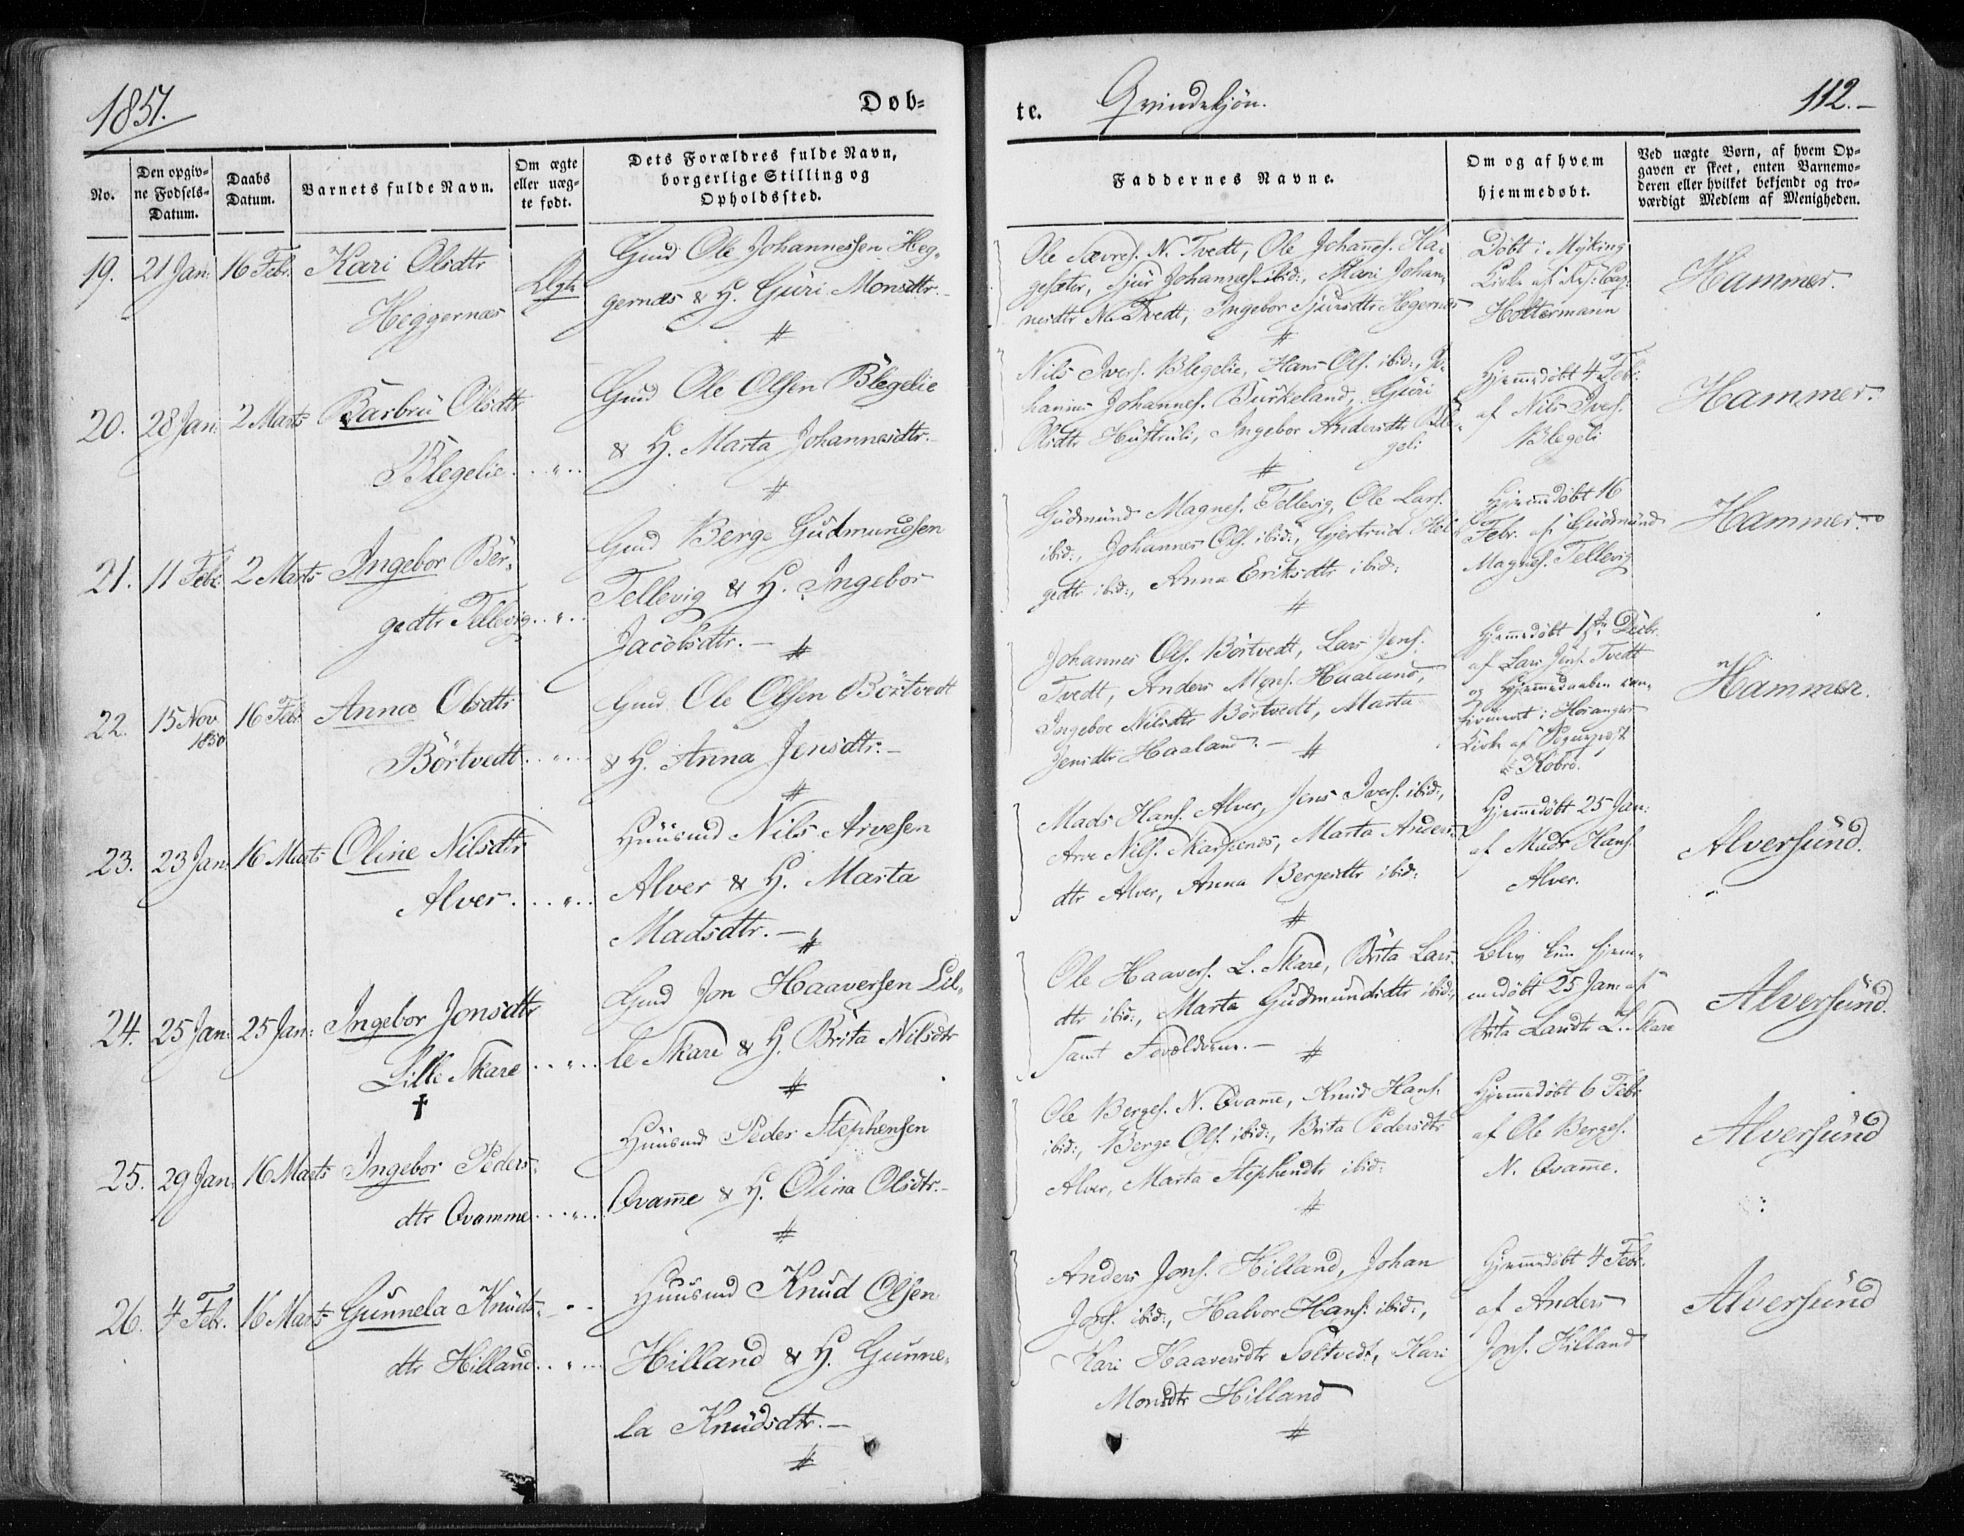 1851.
Døb-
te. Qvindekjøn.
112.
No.
Den opgiv-
ne Fødsels-
Datum.
Daabs
Datum.
Barnets fulde Navn.
Om ægte
eller uæg-
te født.
Dets Forældres fulde Navn,
borgerlige Stilling og
Opholdssted.
Faddernes Navne.
Om og af hvem
hjemmedøbt.
Ved uægte Børn, af hvem Op-
gaven er skeet, enten Barnemo-
deren eller hvilket bekjendt og tro-
værdigt Medlem af Menigheden.
19. 21 Jan: 16 Febr. Kari Olsdtr
Heggernæs
Ægte
Gmd Ole Johannessen Heg-
gernæs & H. Guri Monsdtr.
Ole Sævres. N. Tvedt, Ole Johans. Ha-
gesæter, Sjur Johannes. ibid:, Mari Johan-
nesdtr N. Tvedt, Ingebor Sjursdtr Hegernæs
Døbt i Myking
Kirke af Res: Cap:
Holtermann
Hammer.
20. 28 Jan: 2 Marts Barbru Olsdtr
Blegelie
Gmd Ole Olsen Blegelie
& H. Marta Johannesdtr.
Nils Ivers. Blegelie, Hans Ols. ibid:, Jo-
hannes Johannes. Burkeland, Guri
Olsdtr Hustruli, Ingebor Andersdtr Ble-
geli
Hjemmedøbt 4 Febr:
af Nils Ivers.
Blegeli
Hammer.
21. 11 Febr. 2 Marts Ingebor Ber-
gedtr Tellevig
Gmd Berge Gudmundsen
Tellevig & H. Ingebor
Jacobsdtr.
Gudmund Magnes. Tellevig, Ole Lars.
ibid:, Johannes Ols. ibid:, Gjertrud Hel-
gedtr ibid:, Anna Eriksdtr ibid:
Hjemmedøbt 16
Febr. af Gudmund
Magnes. Tellevig
Hammer.
22. 15 Nov 1850 16 Febr Anna Olsdtr
Börtvedt
Gmd Ole Olsen Börtvedt
& H. Anna Jensdtr.
Johannes Ols. Börtvedt, Lars Jens.
Tvedt, Anders Mons. Haaland,
Ingebor Nilsdtr Börtvedt, Marta
Jensdtr Haaland.
Hjemmedøbt 1ste Decbr.
af Lars Jens. Tvedt
og Hjemmedaaben con-
firmert i Høianger
Kirke af Sognepræst
Kobro.
Hammer.
23. 23 Jan: 16 Marts Oline Nilsdtr
Alver
Huusmd Nils Arvesen
Alver & H. Marta
Madsdtr.
Mads Hans. Alver, Jens Ivers. ibid:,
Arve Nils. Marsenes, Marta Anders-
dtr Alver, Anna Bergesdtr ibid:
Hjemmedøbt 25 Jan:
af Mads Hans.
Alver.
Alversund.
24. 25 Jan: 25 Jan: Ingebor Jonsdtr
Lille Skare
†
Gmd Jon Haaversen Lil-
le Skare & H. Brita Nilsdtr
Ole Haavers. L. Skare, Brita Lars-
dtr ibid:, Marta Gudmundsdtr ibid:,
samt Forældrene.
Blev kun hjem-
medøbt 25 Jan: af
Brita Larsdtr L. Skare
Alversund.
25. 29 Jan: 16 Marts Ingebor Peders-
dtr Qvamme
Huusmd Peder Stephensen
Qvamme & H. Olina Olsdtr.
Ole Berges. N. Qvamme, Knud Hans.
ibid:, Berge Ols. ibid:, Brita Pedersdtr
Alver, Marta Stephensdtr ibid:
Hjemmedøbt 6 Febr:
af Ole Berges.
N. Qvamme.
Alversund
26. 4 Febr. 16 Marts Gunnela Knuds-
dtr Hilland
Huusmd Knud Olsen
Hilland & H. Gunne-
la Knudsdtr.
Anders Jons. Hilland, Johan
Jons. ibid:, Halvor Hans. ibid:,
Kari Haaversdtr Soltvedt, Kari
Monsdtr Hilland
Hjemmedøbt 4 Febr.
af Anders
Jons. Hilland
Alversund